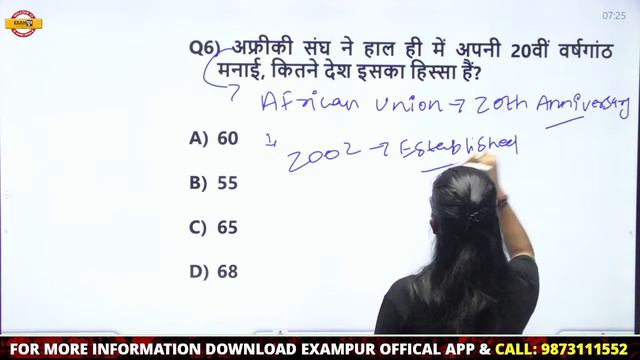 EXAMPUR
07:25
Q6) अफ्रीकी संघ ने हाल ही में अपनी 20वीं वर्षगांठ
मनाई, कितने देश इसका हिस्सा हैं?
African Union → 20th Anniversary
A) 60
2002 → Established
B) 55
C) 65
D) 68
FOR MORE INFORMATION DOWNLOAD EXAMPUR OFFICAL APP & CALL: 9873111552